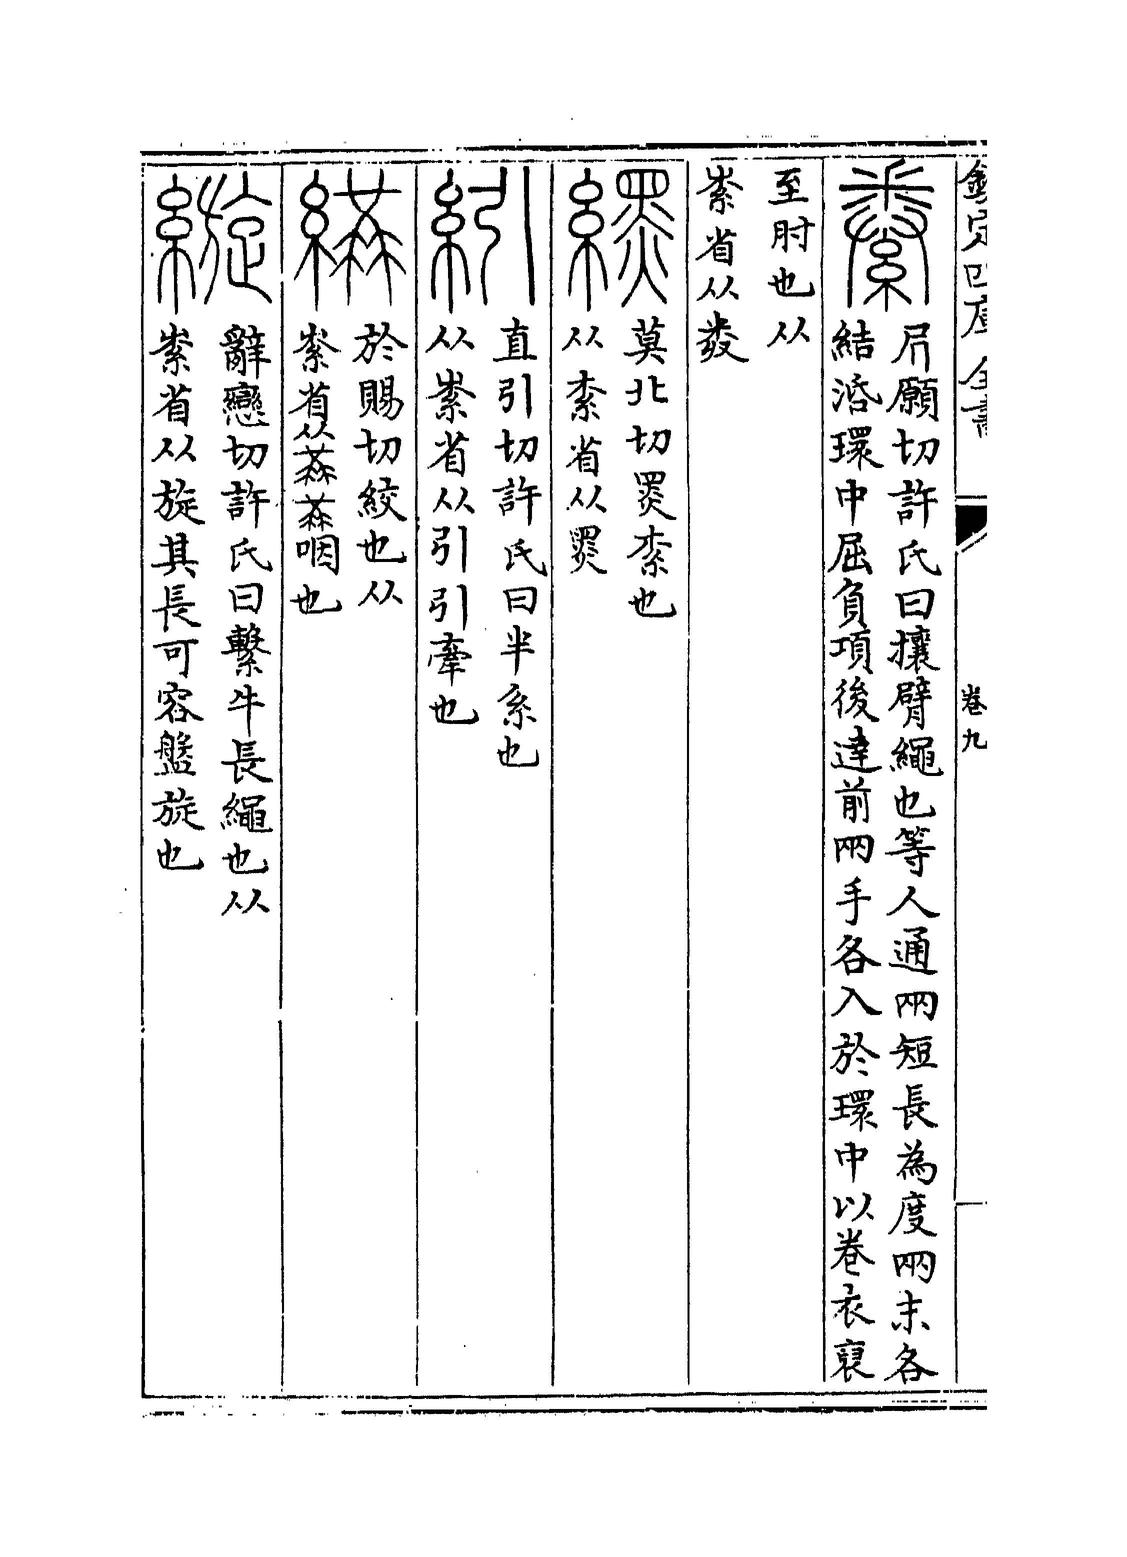 欽定四庫全書
卷九
絭
願切許氏曰攘臂繩也等人通兩短長為度兩末各
結環中屈負項後達前兩手各入於環中以卷衣褎
至肘也从
索省从
纆
莫北切黑索也
从索省从黑
紖
直引切許氏曰半系也
从索省从引引牽也
於賜切絞也从
索省从咽也
縼
辭戀切許氏曰繫牛長繩也从
索省从旋其長可容盤旋也